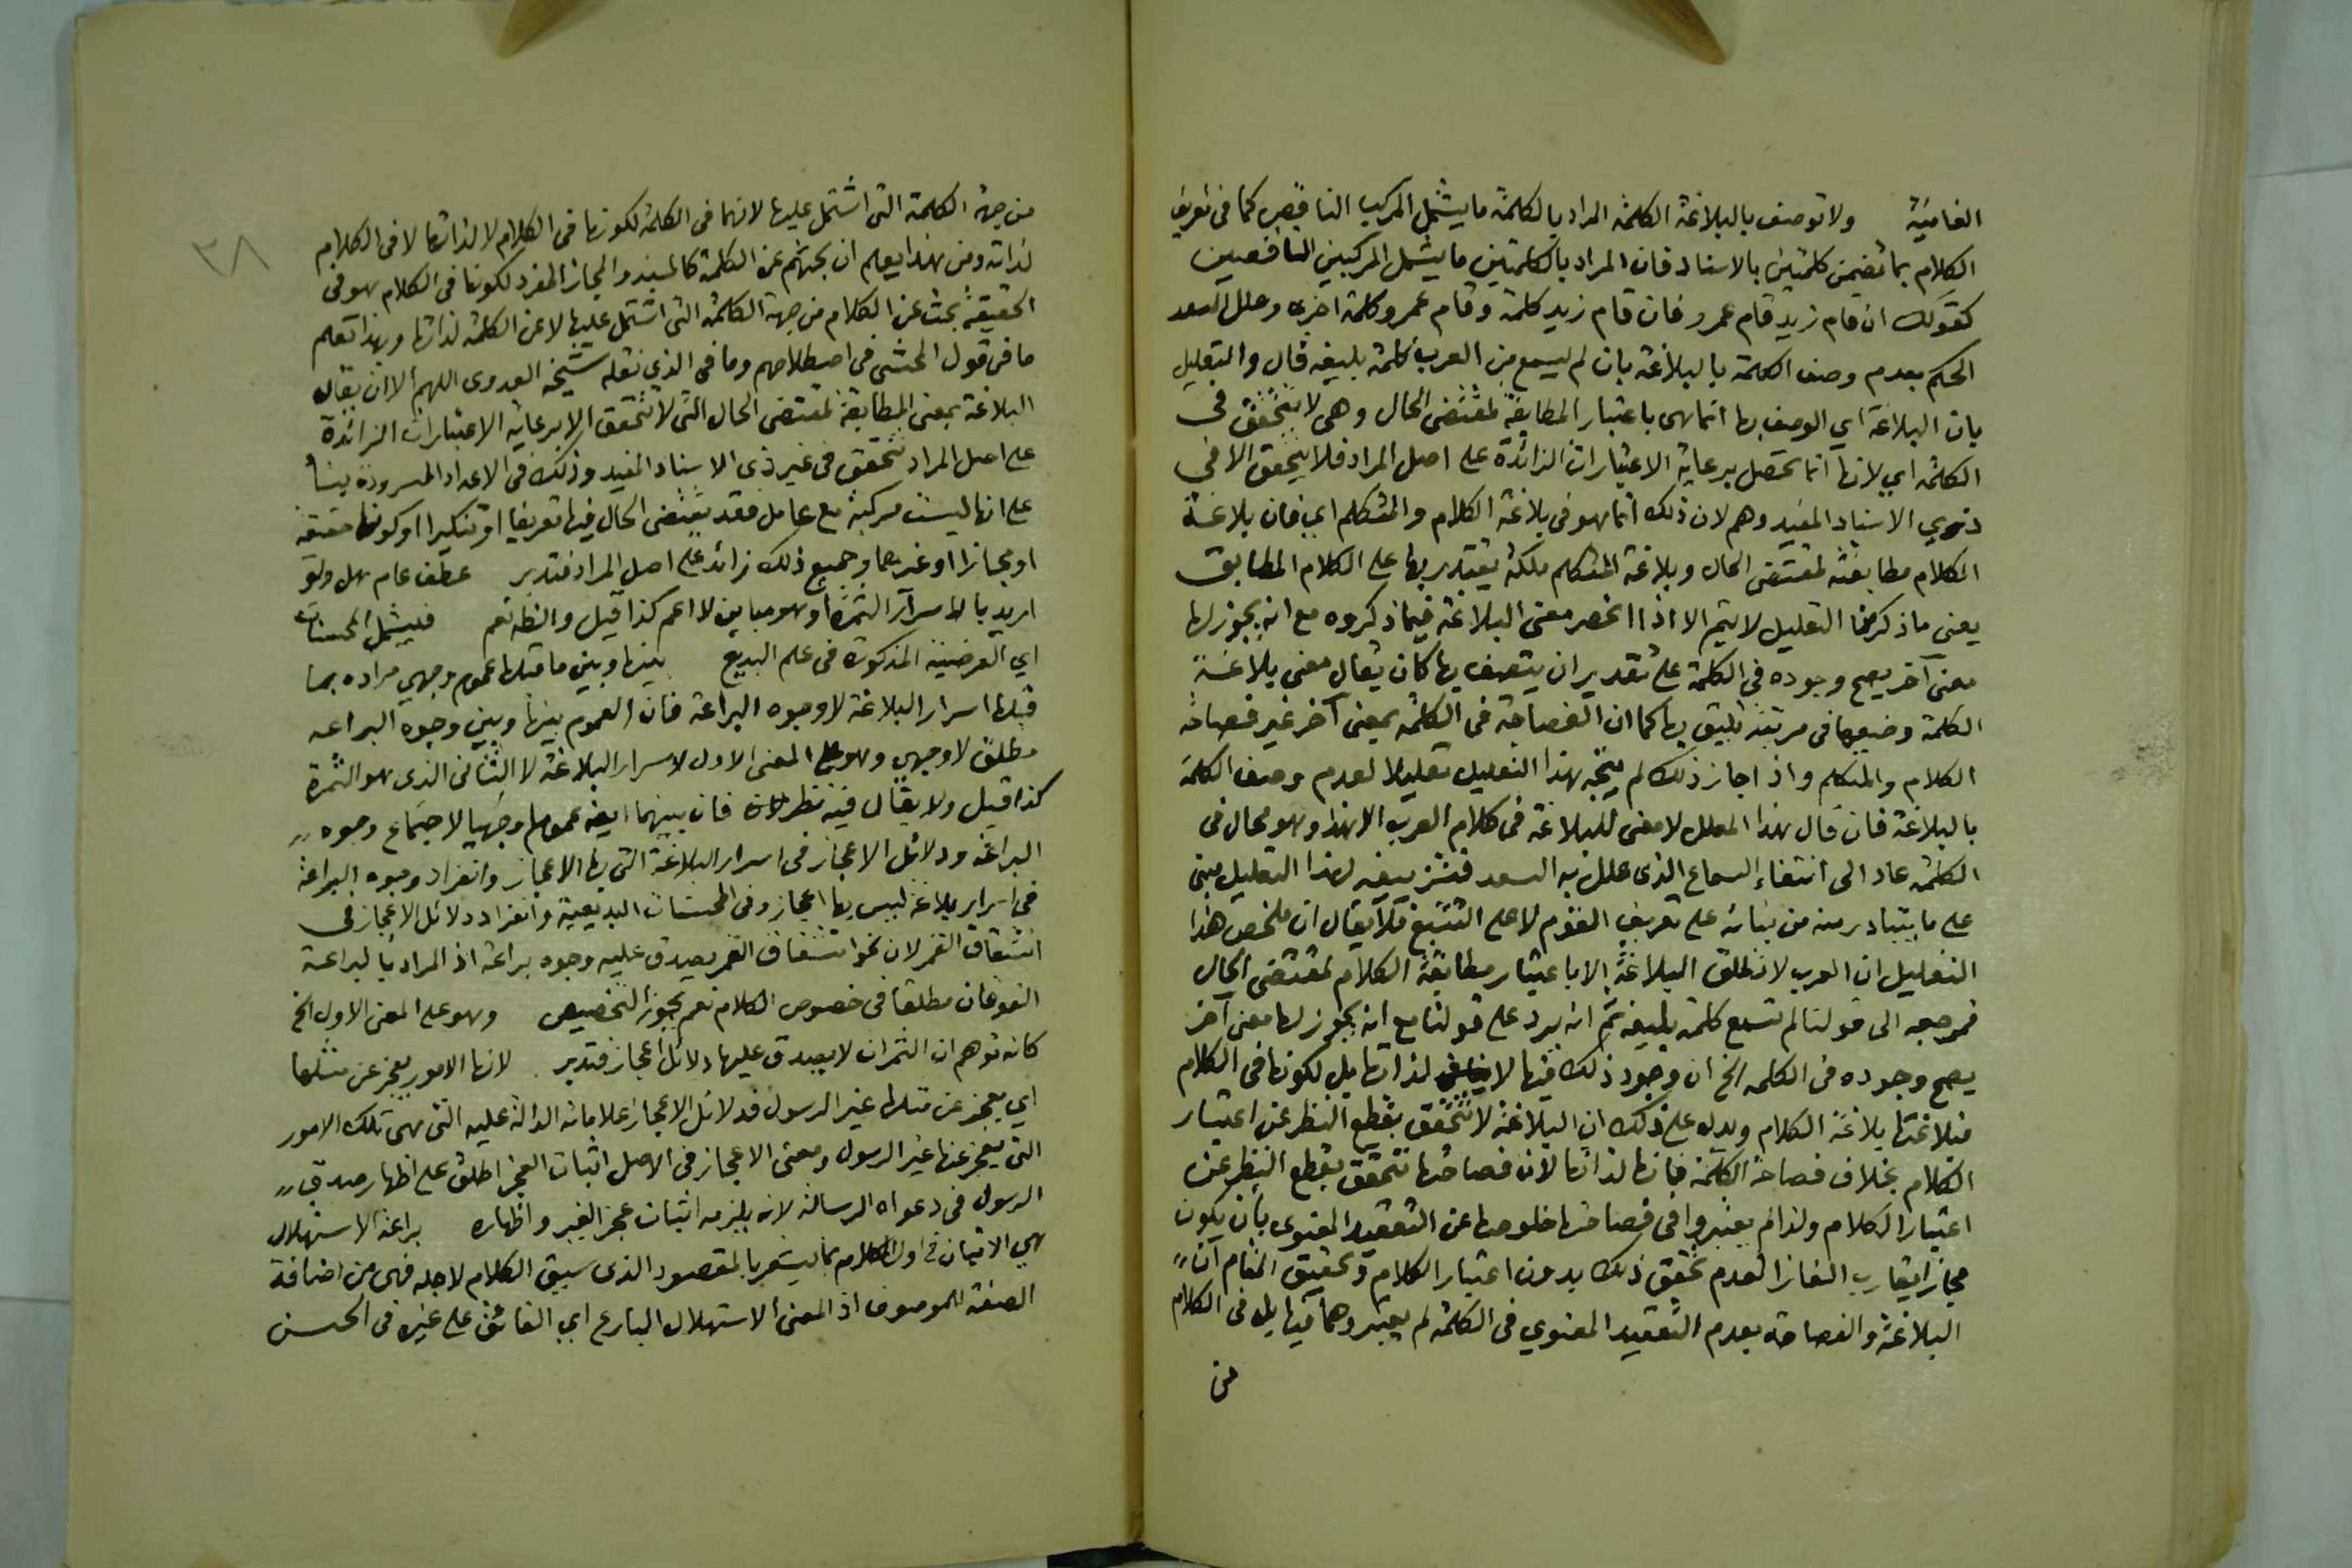 الغائية ولا توصف بالبلاغة الكلمة المراد بالكلمة ما يشمل المركب الناقص كما فى تعريف
الكلام بما تضمن كلمتين بالاسناد فان المراد بالكلمتين ما يشمل المركبين الناقصين
كقولك ان قام زيد قام عمرو فان قام زيد كلمة وقام عمرو كلمة اخرى وعلل السعد
الحكم بعدم وصف الكلمة بالبلاغة بان لم يسمع من العرب كلمة بليغة قال والتعليل
بان البلاغة اي الوصف بها انما هى باعتبار المطابقة لمقتضى الحال وهى لا تتحقق فى
الكلمة اي لانها انما تحصل برعاية الاعتبارات الزائدة على اصل المراد فلا يتحقق الا فى
ذوي الاسناد المفيد وهم لان ذلك انما هو فى بلاغة الكلام والمتكلم اي فان بلاغة
الكلام مطابقته لمقتضى الحال وبلاغة المتكلم ملكة يقتدر بها على الكلام المطابق
يعني ما ذكر من التعليل لا يتم الا اذا انحصر معنى البلاغة فيما ذكروه مع انه يجوز لها
معنى آخر يصح وجوده فى الكلمة على تقدير ان يتصف بها كان يقال معنى بلاغة
الكلمة وضعها فى مرتبة تليق بها كما ان الفصاحة فى الكلمة بمعنى آخر غير فصاحة
الكلام والمتكلم واذ اجاز ذلك لم يتجه هذا التعليل تعليلا لعدم وصف الكلمة
بالبلاغة فان قال هذا المعلل لا معنى للبلاغة فى كلام العرب الا هذا وهو محال فى
الكلمة عاد الى انتفاء السماع الذى علل به السعد فتزييفه لهذا التعليل مبنى
على ما يتبادر منه من بنائه على تعريف القوم لا على التتبع فلا يقال ان ملخص هذا
التعليل ان العرب لا تطلق البلاغة الا باعتبار مطابقة الكلام لمقتضى الحال
فمرجعه الى قولنا لم تسمع كلمة بليغة ثم انه يرد على قولنا مع انه يجوز لها معنى آخر
يصح وجوده فى الكلمة الخ ان وجود ذلك فيها لا لذاتها بل لكونها فى الكلام
فبلاغتها بلاغة الكلام ويدل على ذلك ان البلاغة لا تتحقق بقطع النظر عن اعتبار
الكلام بخلاف فصاحة الكلمة فانها لذاتها لان فصاحتها تتحقق بقطع النظر عن
اعتبار الكلام ولذا لم يعتبروا فى فصاحتها خلوصها عن التعقيد المعنوى بان يكون
مجازا يقارب الغاز العدم تحقق ذلك بدون اعتبار الكلام وتحقيق المقام ان
البلاغة والفصاحة بعدم التعقيد المعنوي فى الكلمة لم يعتبروهما فيها بل فى الكلام
من
٣٨
من جهة الكلمة التى اشتمل عليها لانهما فى الكلمة لكونها فى الكلام لا لذاتها لا فى الكلام
لذاته ومن هذا يعلم ان بحثهم عن الكلمة كالمسند والمجاز المفرد لكونها فى الكلام هو فى
الحقيقة بحث عن الكلام من جهة الكلمة التى اشتمل عليها لا عن الكلمة لذاتها وبهذا تعلم
ما فى قول المحشى فى اصطلاحهم وما فى الذي نقله شيخه العدوى اللهم الا ان يقال
البلاغة بمعنى المطابقة لمقتضى الحال التى لا تتحقق الا برعاية الاعتبارات الزائدة
على اصل المراد تتحقق فى غير ذى الاسناد المفيد وذلك فى الاعداد المسرودة بناء
على انها ليست مركبة مع عامل فقد يقتضى الحال فيها تعريفا او تنكيرا او كونها حقيقة
او مجازا او غيرهما وجميع ذلك زائد على اصل المراد فتدبر عطف عام هل ولو
اريد بالاسرار الثمرة او هو مباين لا اعم كذا قيل والظ نعم فيشمل المحسنات
اي العرضية المذكورة فى علم البديع بينها وبين ما قبلها عموم وجهي مراده بما
قبلها اسرار البلاغة لا وجوه البراعة فان العموم بينها وبين وجوه البراعه
مطلق لا وجهي وهو على المعنى الاول لاسرار البلاغة لا الثانى الذى هو الثمرة
كذا قيل ولا يقال فيه نظر فان بينهما ايضا عموما وجهيا لاجتماع وجوه
البراعة ودلائل الاعجاز فى اسرار البلاغة التى بها الاعجاز وانفراد وجوه البراعة
فى اسرار بلاغة ليس بها اعجاز وفى المحسنات البديعية وانفراد دلائل الاعجاز فى
انشقاق القمر لان نحو انشقاق القمر يصدق عليه وجوه براعة اذ المراد بالبراعة
الفوقان مطلقا فى خصوص الكلام نعم يجوز التخصيص وهو على المعنى الاول الخ
كانه توهم ان الثمرات لا يصدق عليها دلائل اعجاز فتدبر لانها الامور يعجز عن مثلها
اي يعجز عن مثلها غير الرسول فدلائل الاعجاز علاماته الدالة عليه التى هى تلك الامور
التى يعجز عنها غير الرسول ومعنى الاعجاز فى الاصل اثبات العجز اطلق على اظهار صدق
الرسول فى دعواه الرسالة لانه يلزمه اثبات عجز الغير واظهاره براعة الاستهلال
هي الاتيان فى اول الكلام بما يشعر بالمقصود الذى سيق الكلام لاجله فهى من اضافة
الصفة للموصوف اذ المعنى الاستهلال البارع اي الفائق على غيره فى الحسن